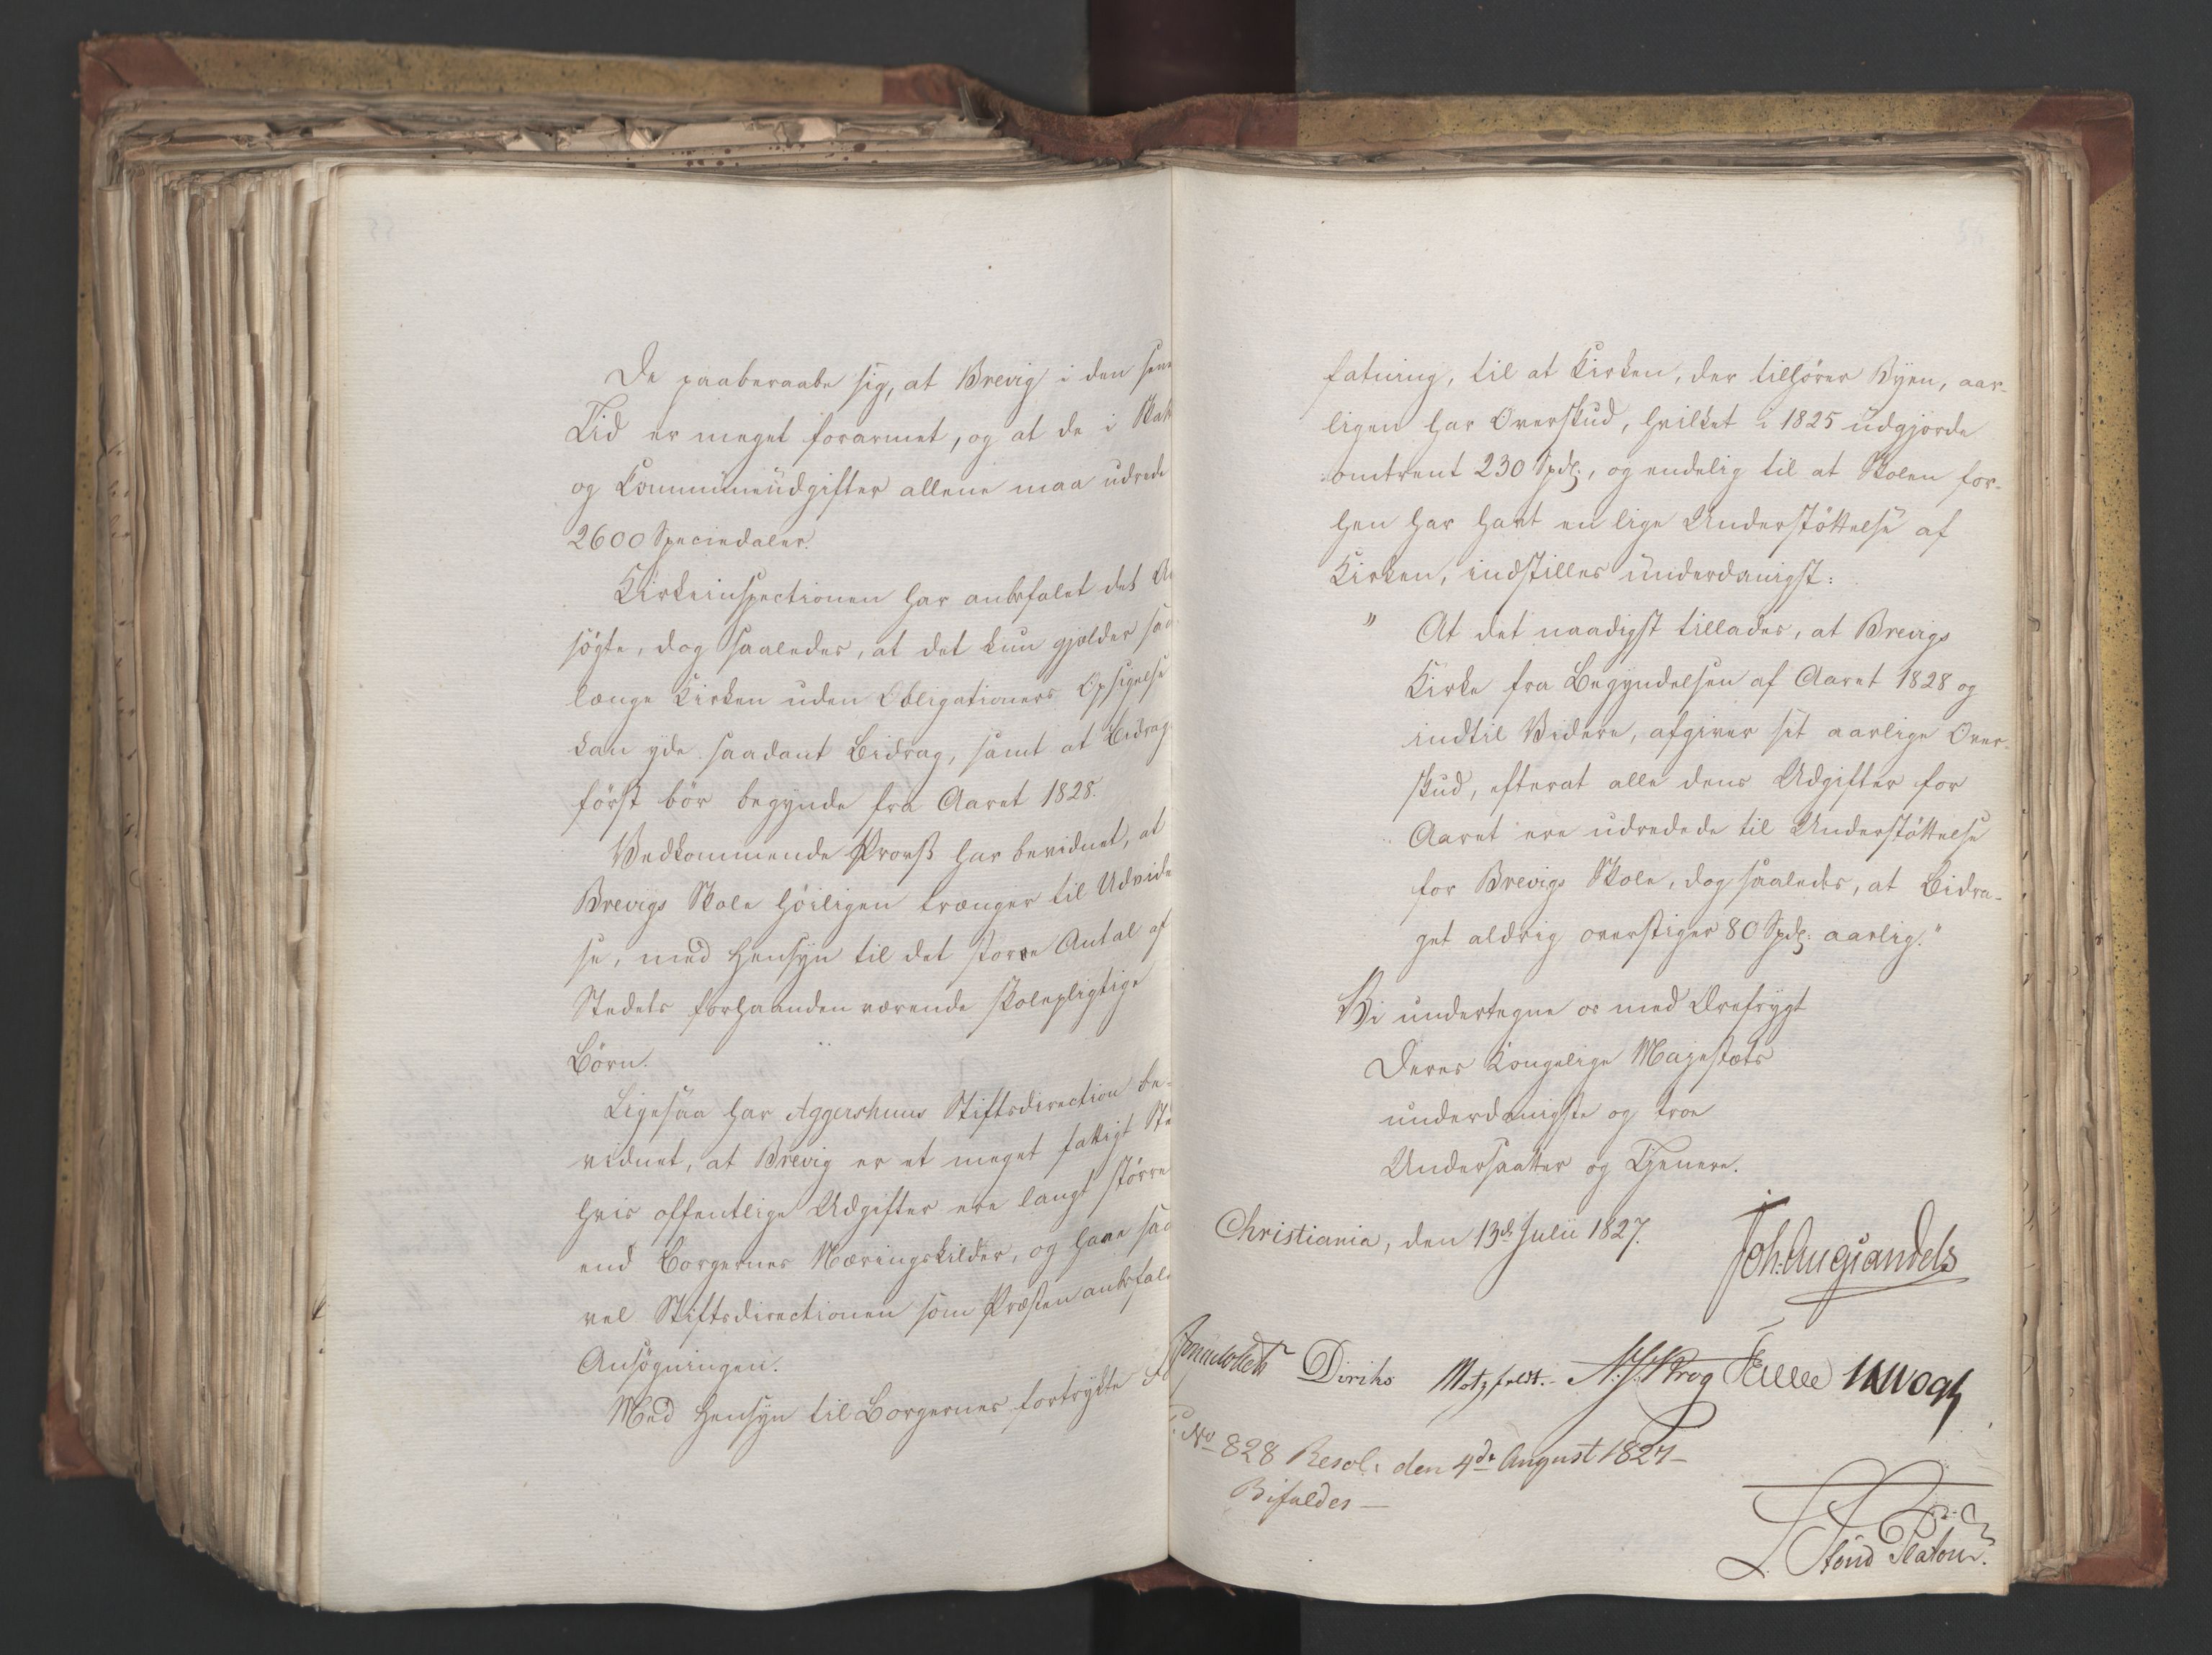 De paaberaabe sig, at Brevig i den sene
Tid er meget forarmet, og at de i Skat
og Communeudgifter allene maa udrede
2600 Speciedaler.
Kirkeinspectionen har anbefalet det An
søgte, dog saaledes, at det kun gjelder saa
længe Kirken uden Obligationers Opsigelse
kan yde saadant Bidrag, samt at Bidrag
først bör begynde fra Aaret 1828.
Vedkommende Provst har bevidnet, at
Brevigs Skole höiligen trænger til Udvidel
se, med Hensyn til det store Antal af
Stedets forhaanden værende skolepligtige
Börn.
Ligesaa har Aggershuus Stiftsdirection be-
vidnet, at Brevig er et meget fattigt Ste
hvis offentlige Udgifter ere langt större
end Borgernes Næringskilder, og have saa
vel Stiftsdirectionen som Præsten anbefalet
Ansögningen.
Med Hensyn til Borgernes fortrykte
fatning, til at Kirken, der tilhörer Byen, aar-
ligen har Overskud, hvilket i 1825 udgjorde
omtrent 230 Spdl:, og endelig til at Skolen for-
hen har havt en lige Understöttelse af
Kirken, indstilles underdanigst:
" At det naadigst tillades, at Brevigs
Kirke fra Begyndelsen af Aaret 1828 og
indtil Videre, afgiver sit aarlige Over-
skud, efterat alle dens Udgifter for
Aaret ere udredede til Understöttelse
for Brevigs Skole, dog saaledes, at Bidra-
get aldrig overstiger 80 Spdl: aarlig."
Vi undertegne os med Ærefrygt
Deres Kongelige Majestæts
underdanigste og troe
Undersaatter og Tjenere.
Christiania, den 13de Julii 1827.
Joh. Aug. Sandels
Jonas Collett Diriks Motzfeldt. N. J. Krog Treschow J H Vogt
P. No 828 Resol: den 4de August 1827 -
Bifaldes -
Stoud Platou.